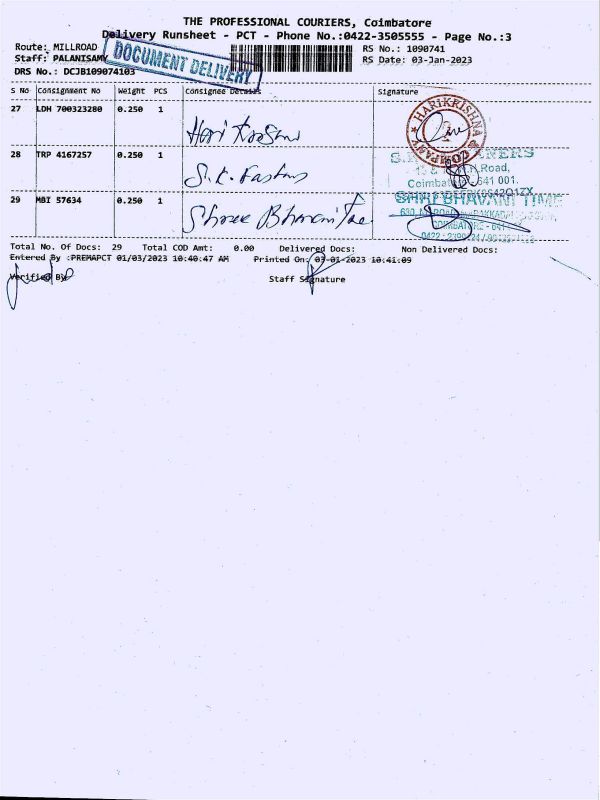 THE PROFESSIONAL COURIERS, Coimbatore
Delivery Runsheet - PCT - Phone No.:0422-3505555 - Page No.:3
Route: MILLROAD
RS No.: 1090741
Staff: PALANISAMY
RS Date: 03-Jan-2023
DRS No.: DCJB109074103
DOCUMENT DELIVERY
S No Consignment No Weight PCS Consignee Details Signature
27 LDH 700323280 0.250 1 Hari Krishna
HARIKRISHNA & COMPANY
28 TRP 4167257 0.250 1 S.K. Fastners
Road,
Coimbatore 641 001.
29 MBI 57634 0.250 1 Shree Bhavani Time
SHRI BHAVANI TIME
COIMBATORE - 641
Total No. Of Docs: 29 Total COD Amt: 0.00 Delivered Docs: Non Delivered Docs:
Entered By :PREMAPCT 01/03/2023 10:40:47 AM Printed On: 03-01-2023 10:41:09
Verified By
Staff Signature